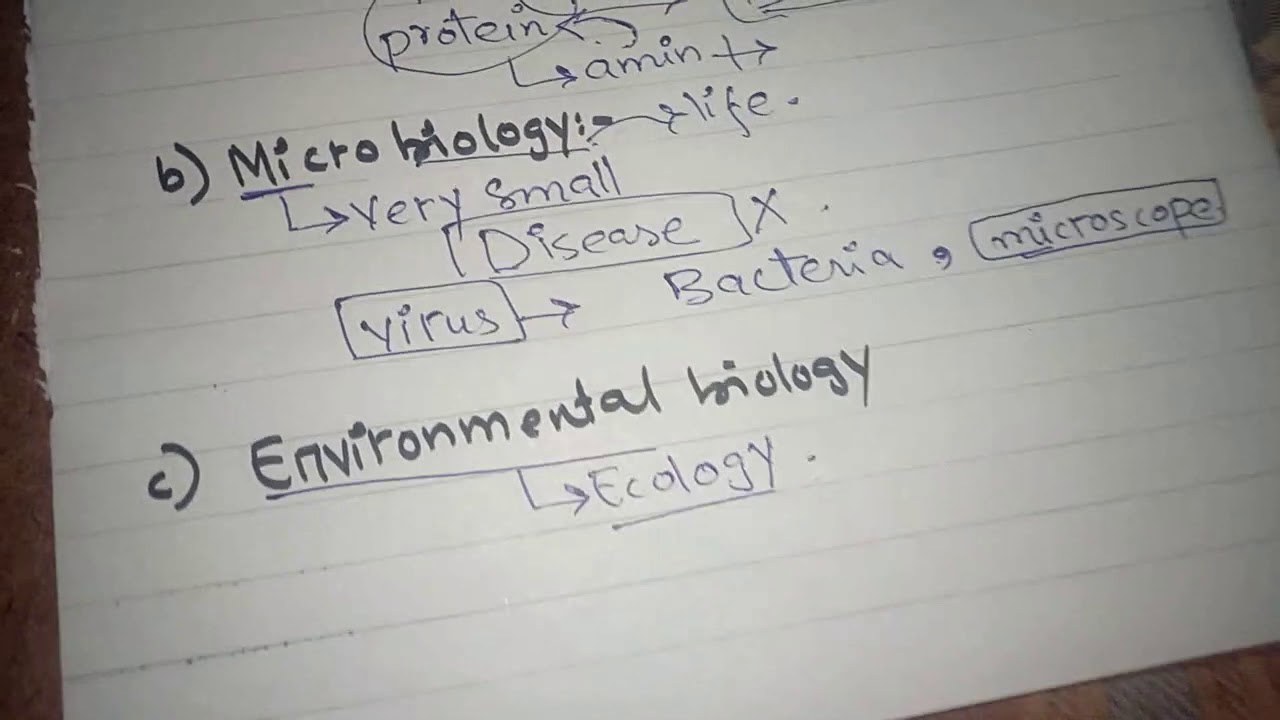 protein
↳ amin
b) Microbiology:- → life.
↳ very small
Disease X .
Bacteria , microscope
virus →
c) Environmental biology
↳ Ecology .